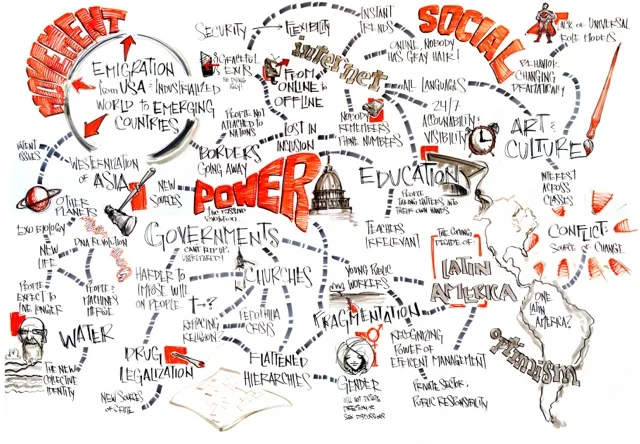 MOVEMENT
EMIGRATION
from USA & INDUSTRIALIZED
WORLD to EMERGING
COUNTRIES
SECURITY
FLEXIBILITY
INSTANT
TRENDS
internet
ONLINE, NOBODY
HAS GRAY HAIR!
SOCIAL
LACK OF UNIVERSAL
ROLE MODELS
BEHAVIOR
CHANGING
DRAMATICALLY
FROM
ONLINE to
OFFLINE
ALL LANGUAGES
24/7
ACCOUNTABILITY &
VISIBILITY
ART &
CULTURE
PEOPLE NOT
ATTACHED to
NATIONS
LOST IN
INCLUSION
NOBODY
REMEMBERS
PHONE NUMBERS
PATENT
ISSUES
WESTERNIZATION
OF
ASIA
BORDERS
GOING AWAY
NEW
SOURCES
POWER
EDUCATION
PEOPLE
TAKING MATTERS INTO
THEIR OWN HANDS
INTEREST
ACROSS
CLASSES
OTHER
PLANETS
EXO BIOLOGY
DNA REVOLUTION
NEW
LIFE
GOVERNMENTS
TEACHERS
IRRELEVANT
THE COMING
DECADE OF:
LATIN
AMERICA
CONFLICT:
SOURCE of CHANGE
PEOPLE
EXPECT TO
LIVE LONGER
PEOPLE &
MACHINERY
MERGE
HARDER TO
IMPOSE WILL
ON PEOPLE.
CHURCHES
YOUNG PUBLIC
WORKERS
ONE
LATIN
AMERICA?
→ ?
REPLACING
RELIGION
PEDOPHILIA
CRISIS
FRAGMENTATION
optimism
WATER
THE NEW
COLLECTIVE
IDENTITY
DRUG
LEGALIZATION
FLATTENED
HIERARCHIES
RECOGNIZING
POWER OF
EFFICIENT MANAGEMENT
NEW SOURCES
OF CRIME
GENDER
PRIVATE SECTOR,
PUBLIC RESPONSIBILITY